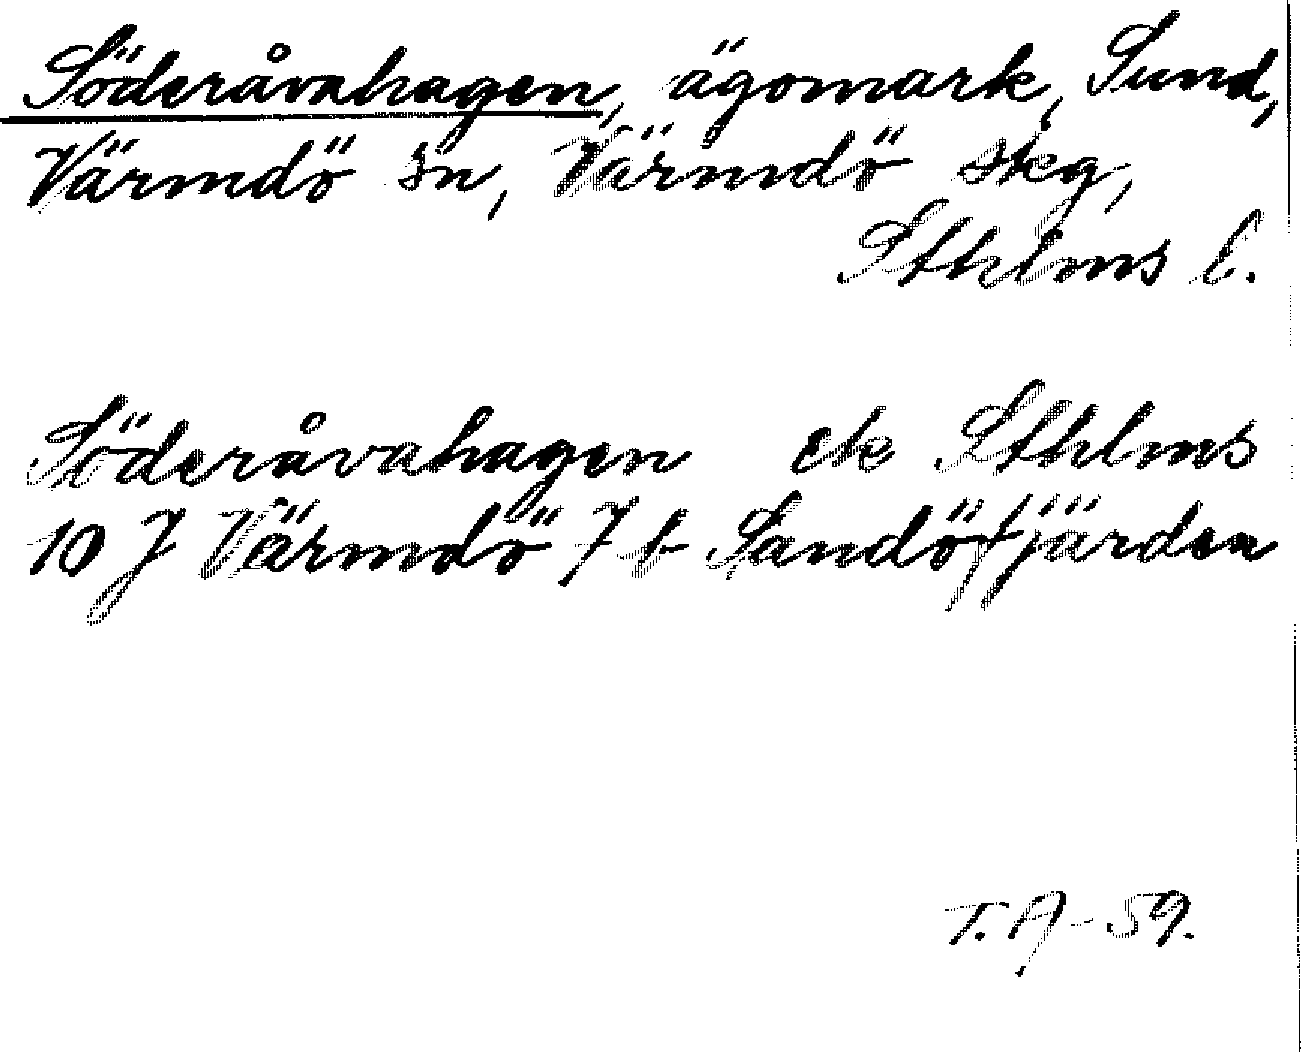 Söderåvahagen, ägomark, Sund,
Värmdö sn, Värmdö skg,
Sthlms l.
Söderåvahagen ek Sthlms
10 J Värmdö 7 b Sandöfjärden
T. A-59.